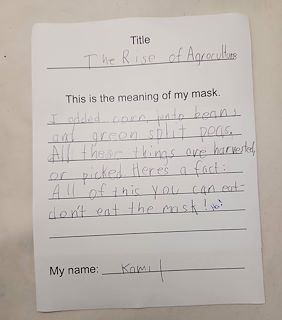 Title
The Rise of Agroculture
This is the meaning of my mask.
I added corn, pinto beans
and green split peas.
All these things are harvested,
or picked. Heres a fact:
All of this you can eat-
don't eat the mask!
My name: Kamil